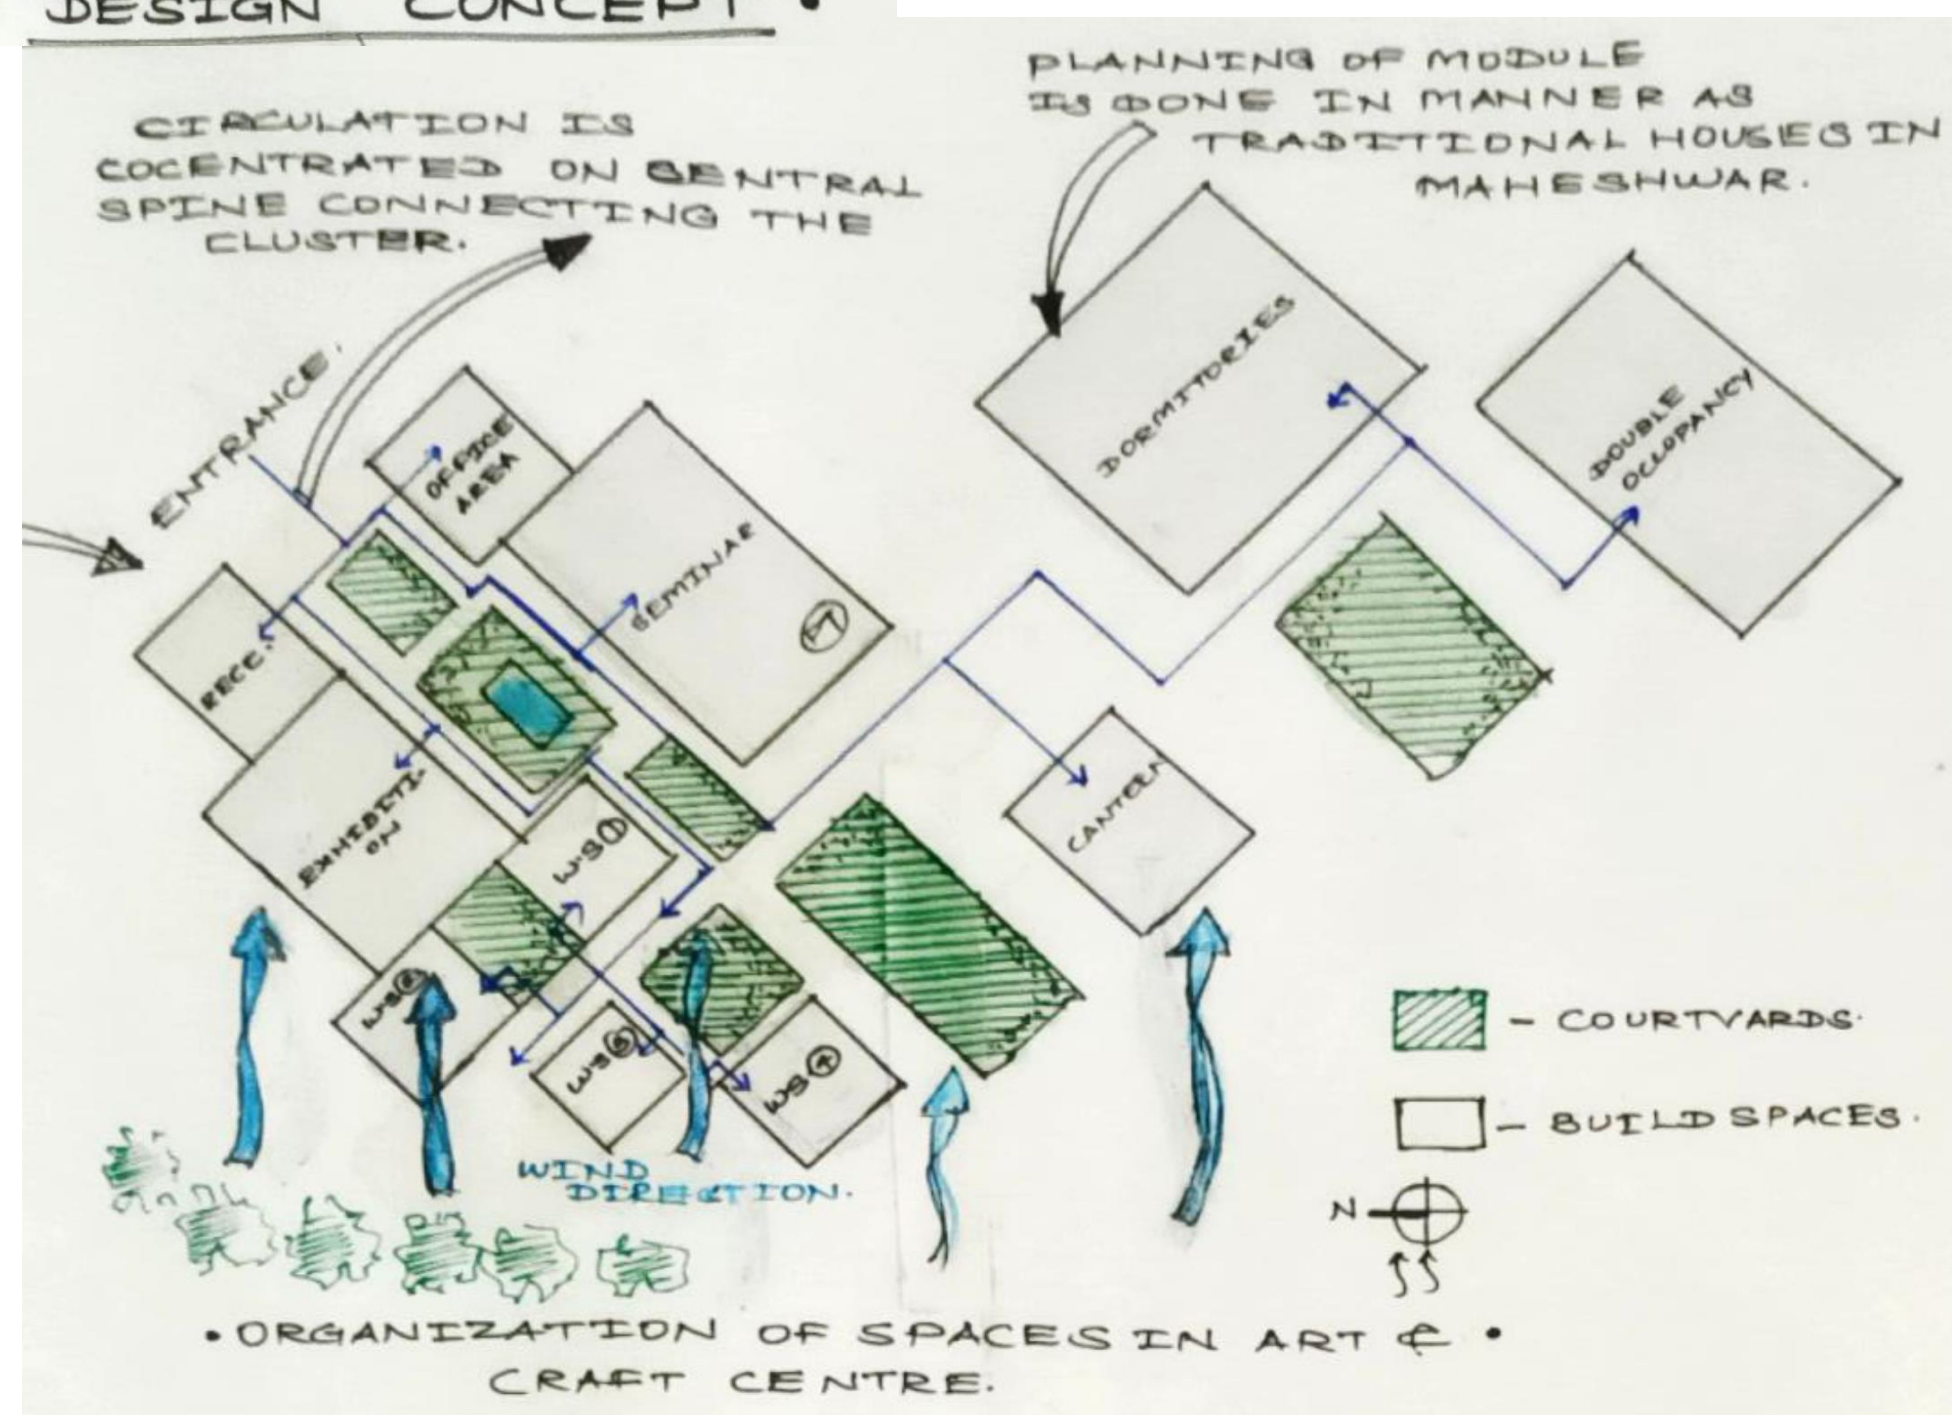 DESIGN CONCEPT •
CIRCULATION IS
COCENTRATED ON CENTRAL
SPINE CONNECTING THE
CLUSTER.
PLANNING OF MODULE
IS DONE IN MANNER AS
TRADITIONAL HOUSES IN
MAHESHWAR.
ENTRANCE.
OFFICE
AREA
SEMINAR
DORMITORIES
DOUBLE
OCCUPANCY
RECE.
EXHIBITI
ON
W.S ①
CANTEEN
W.S ②
W.S ③
W.S ④
WIND
DIRECTION.
- COURTYARDS.
- BUILD SPACES.
N
• ORGANIZATION OF SPACES IN ART & •
CRAFT CENTRE.